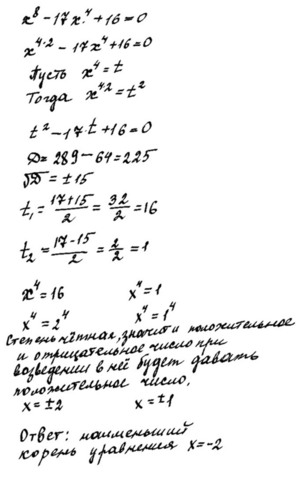 x⁸ - 17x⁴ + 16 = 0
x⁴˙² - 17x⁴ + 16 = 0
Пусть x⁴ = t
Тогда x⁴˙² = t²
t² - 17·t + 16 = 0
D = 289 - 64 = 225
√D = ±15
t₁ = (17+15)/2 = 32/2 = 16
t₂ = (17-15)/2 = 2/2 = 1
x⁴ = 16 x⁴ = 1
x⁴ = 2⁴ x⁴ = 1⁴
Степень чётная, значит и положительное
и отрицательное число при
возведении в неё будет давать
положительное число.
x = ±2 x = ±1
Ответ: наименьший
корень уравнения x = -2